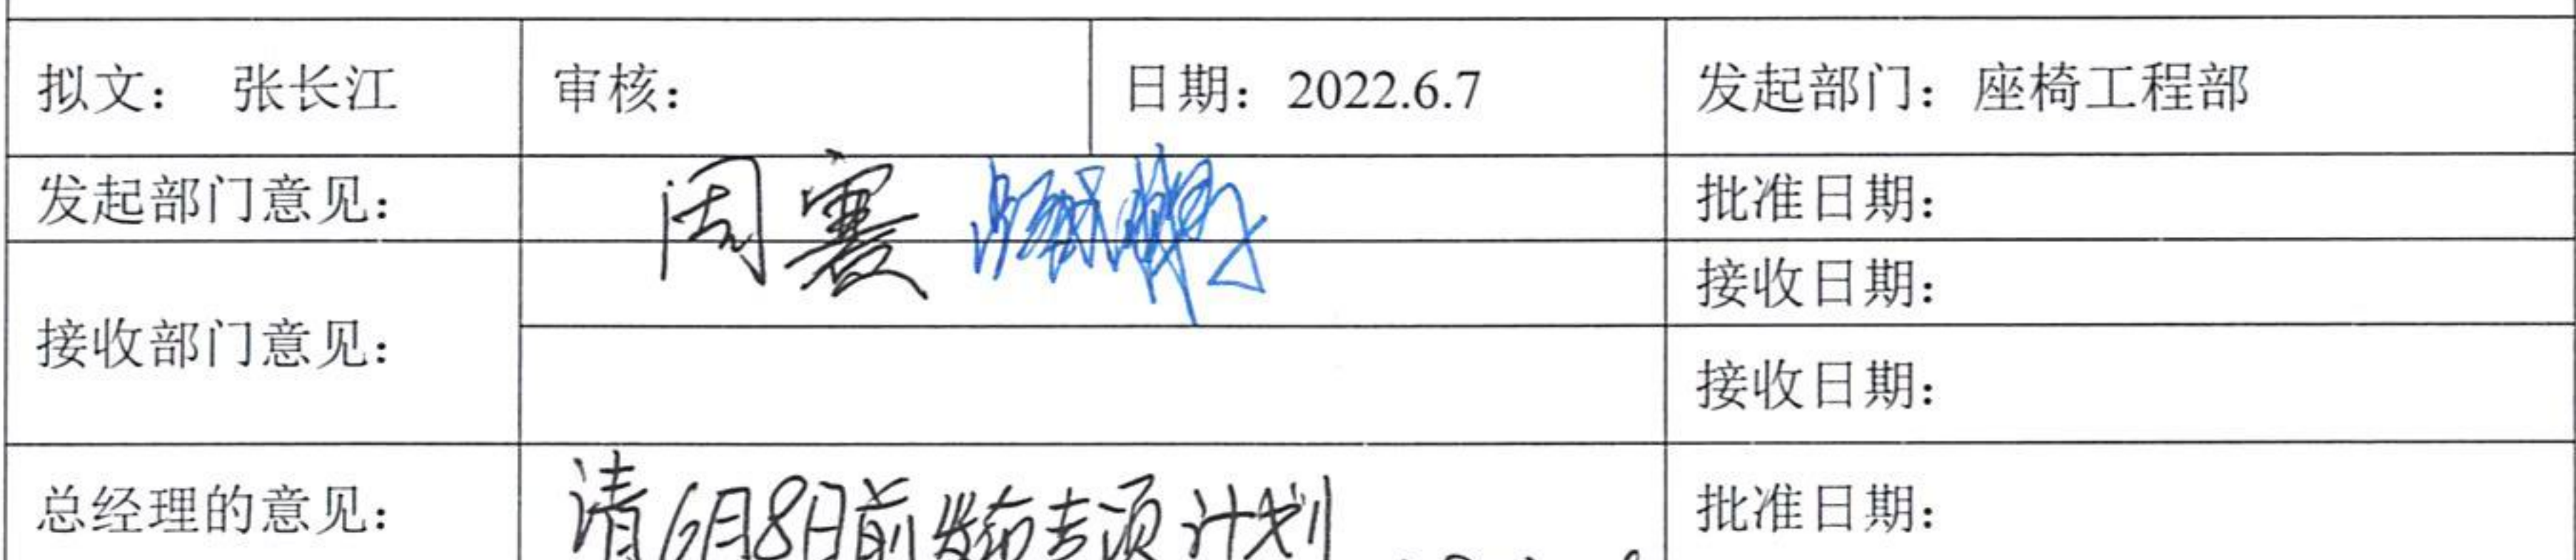 拟文： 张长江 审核： 日期：2022.6.7 发起部门：座椅工程部
发起部门意见： 周赛 批准日期：
接收部门意见： 接收日期：
接收日期：
总经理的意见： 请6月8日前发布专项计划 批准日期：